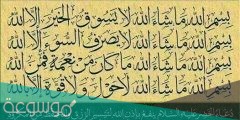 بسم الله ما شاء الله لا يسوق الخير إلا الله
بسم الله ما شاء الله لا يصرف السوء إلا الله
بسم الله ما شاء الله ما كان من نعمة فمن الله
بسم الله ما شاء الله لا حول ولا قوة إلا بالله
موسوعة